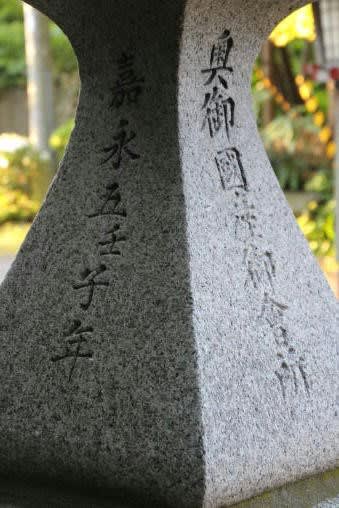 奥御國産御会所
嘉永五壬子年